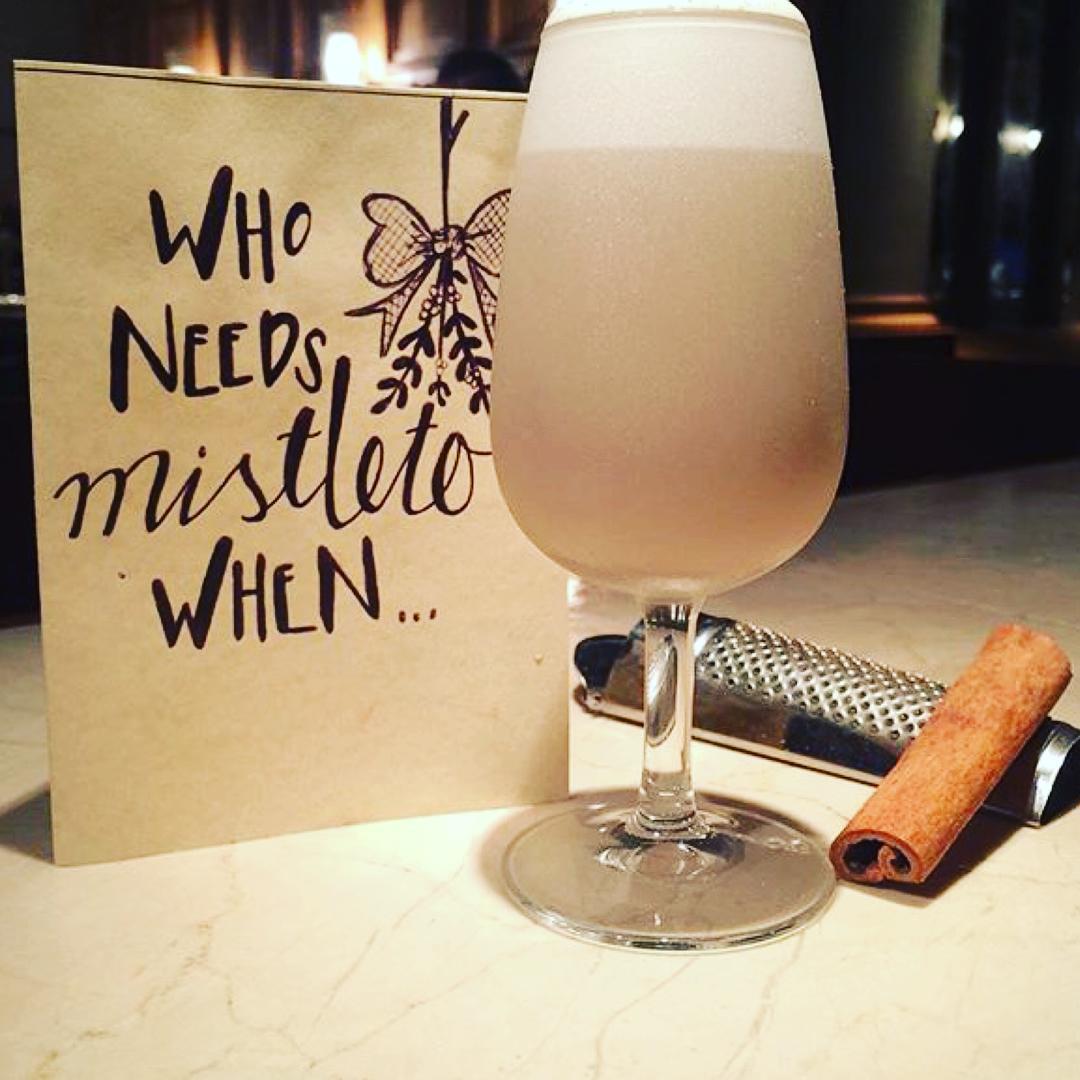 WHO
NEEDS
mistleto
WHEN...